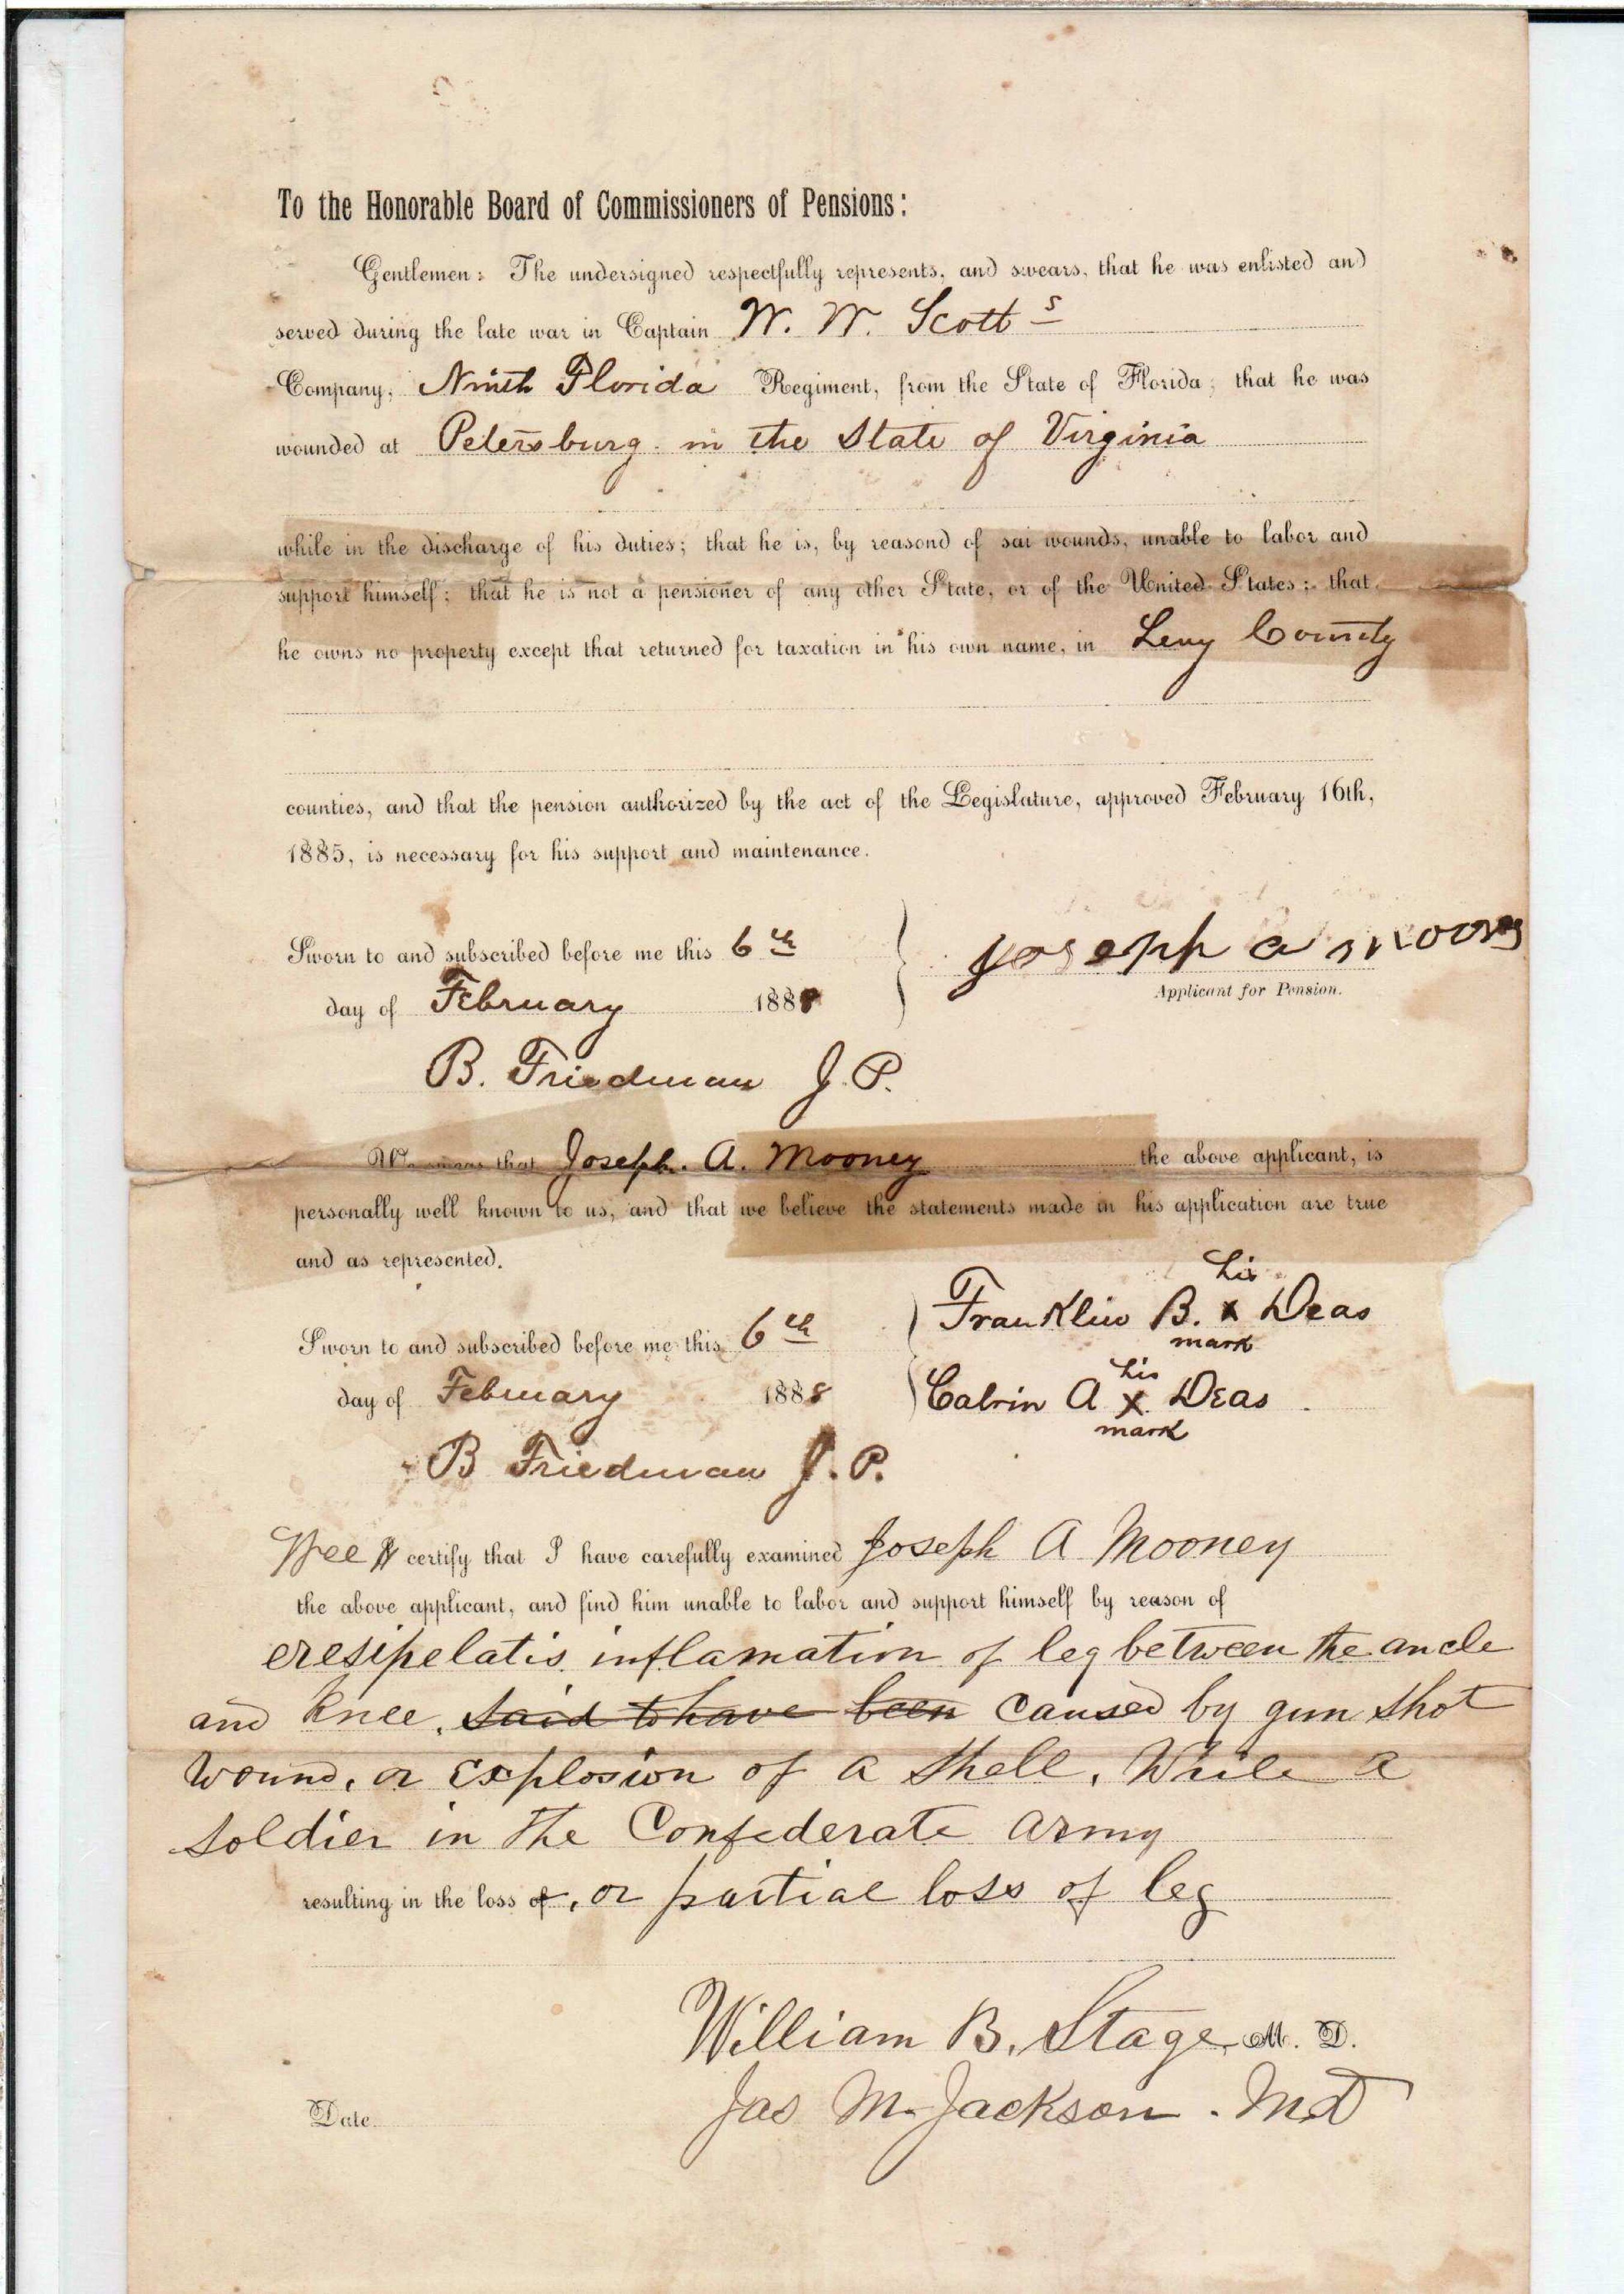 To the Honorable Board of Commissioners of Pensions:
Gentlemen: The undersigned respectfully represents, and swears, that he was enlisted and
served during the late war in Captain W. W. Scott s
Company, Ninth Florida Regiment, from the State of Florida; that he was
wounded at Petersburg in the State of Virginia
while in the discharge of his duties; that he is, by reasond of sai wounds, unable to labor and
support himself; that he is not a pensioner of any other State, or of the United States; that
he owns no property except that returned for taxation in his own name, in Levy County
counties, and that the pension authorized by the act of the Legislature, approved February 16th,
1885, is necessary for his support and maintenance.
Sworn to and subscribed before me this 6th
day of February 1888
Joseph a mooney
Applicant for Pension.
B. Friedman J. P.
that Joseph. A. Mooney the above applicant, is
personally well known to us, and that we believe the statements made in his application are true
and as represented.
Sworn to and subscribed before me this 6th
day of February 1888
Franklin B. his x mark Deas
Calvin A his x mark Deas
B Friedman J. P.
Wee certify that I have carefully examined Joseph A Mooney
the above applicant, and find him unable to labor and support himself by reason of
eresipelatis inflamation of leg between the ancle
and Knee, said to have been caused by gun shot
wound, or explosion of a shell, While a
soldier in the Confederate army
resulting in the loss of, or partial loss of leg
William B. Stage M. D.
Jas M. Jackson. MD
Date